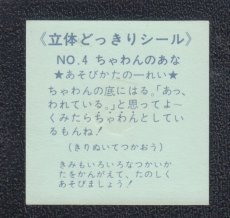 《立体どっきりシール》
NO.4 ちゃわんのあな
★あそびかたの一れい★
ちゃわんの底にはる。「あっ、
われている。」と思ってよ〜
くみたらちゃわんとしてい
るもんね!
(きりぬいてつかおう)
きみもいろいろなつかいか
たをかんがえて、たのしく
あそびましょう!